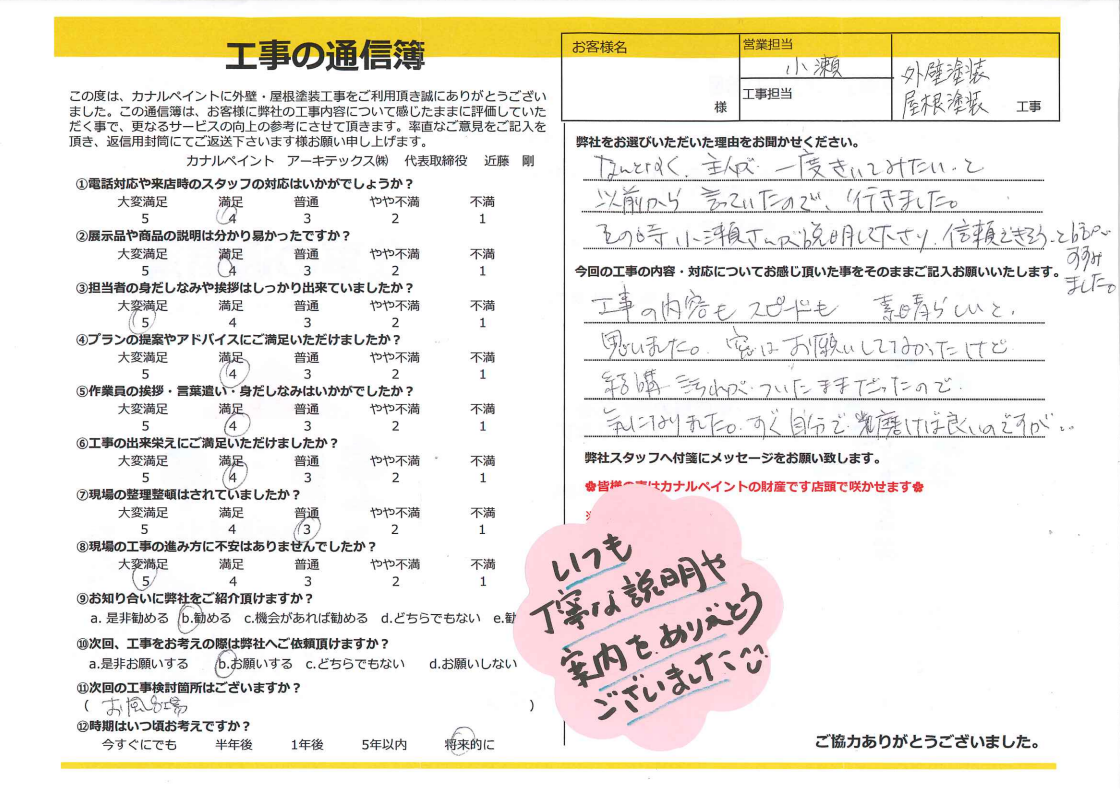 工事の通信簿
この度は、カナルペイントに外壁・屋根塗装工事をご利用頂き誠にありがとうござい
ました。この通信簿は、お客様に弊社の工事内容について感じたままに評価していた
だく事で、更なるサービスの向上の参考にさせて頂きます。率直なご意見をご記入を
頂き、返信用封筒にてご返送下さいます様お願い申し上げます。
カナルペイント アーキテックス㈱ 代表取締役 近藤 剛
①電話対応や来店時のスタッフの対応はいかがでしょうか？
大変満足 満足 普通 やや不満 不満
5 4 3 2 1
②展示品や商品の説明は分かり易かったですか？
大変満足 満足 普通 やや不満 不満
5 4 3 2 1
③担当者の身だしなみや挨拶はしっかり出来ていましたか？
大変満足 満足 普通 やや不満 不満
5 4 3 2 1
④プランの提案やアドバイスにご満足いただけましたか？
大変満足 満足 普通 やや不満 不満
5 4 3 2 1
⑤作業員の挨拶・言葉遣い・身だしなみはいかがでしたか？
大変満足 満足 普通 やや不満 不満
5 4 3 2 1
⑥工事の出来栄えにご満足いただけましたか？
大変満足 満足 普通 やや不満 不満
5 4 3 2 1
⑦現場の整理整頓はされていましたか？
大変満足 満足 普通 やや不満 不満
5 4 3 2 1
⑧現場の工事の進み方に不安はありませんでしたか？
大変満足 満足 普通 やや不満 不満
5 4 3 2 1
⑨お知り合いに弊社をご紹介頂けますか？
a. 是非勧める b.勧める c.機会があれば勧める d.どちらでもない e.勧
⑩次回、工事をお考えの際は弊社へご依頼頂けますか？
a.是非お願いする b.お願いする c.どちらでもない d.お願いしない
⑪次回の工事検討箇所はございますか？
( お風呂場 )
⑫時期はいつ頃お考えですか？
今すぐにでも 半年後 1年後 5年以内 将来的に
お客様名
様
営業担当
小瀬
工事担当
外壁塗装
屋根塗装 工事
弊社をお選びいただいた理由をお聞かせください。
なんとなく、主人が 一度きいてみたいと
以前から 言っていたので、行きました。
その時 小瀬さんが説明して下さり、信頼できそうと
すすみ
ました。
今回の工事の内容・対応についてお感じ頂いた事をそのままご記入お願いいたします。
工事の内容も スピードも 素晴らしいと、
思いました。窓は お願いしてなかったけど
結構 汚れが ついたままだったので
気になりました。すぐ自分で 磨けば良いのですが...
弊社スタッフへ付箋にメッセージをお願い致します。
✿皆様の声はカナルペイントの財産です店頭で咲かせます✿
※
いつも
丁寧な説明や
案内を ありがとう
ございました
ご協力ありがとうございました。